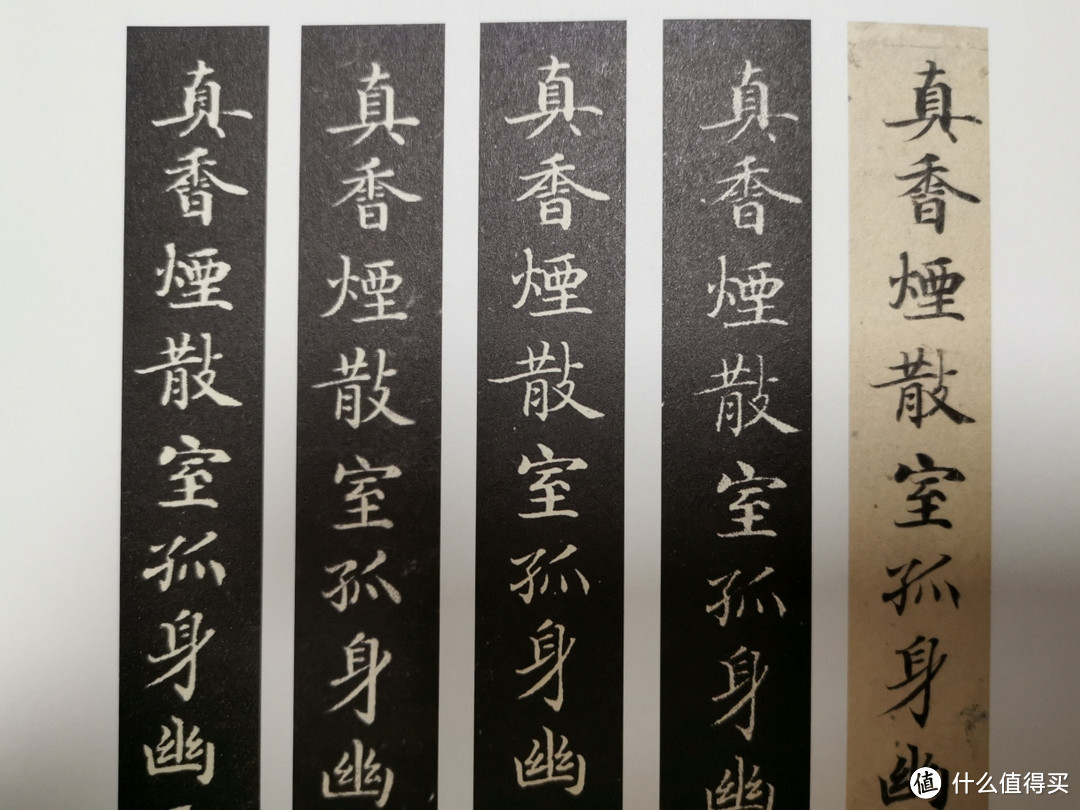 真香煙散室孤身幽
真香煙散室孤身幽
真香煙散室孤身幽
真香煙散室孤身幽
真香煙散室孤身幽
值 什么值得买